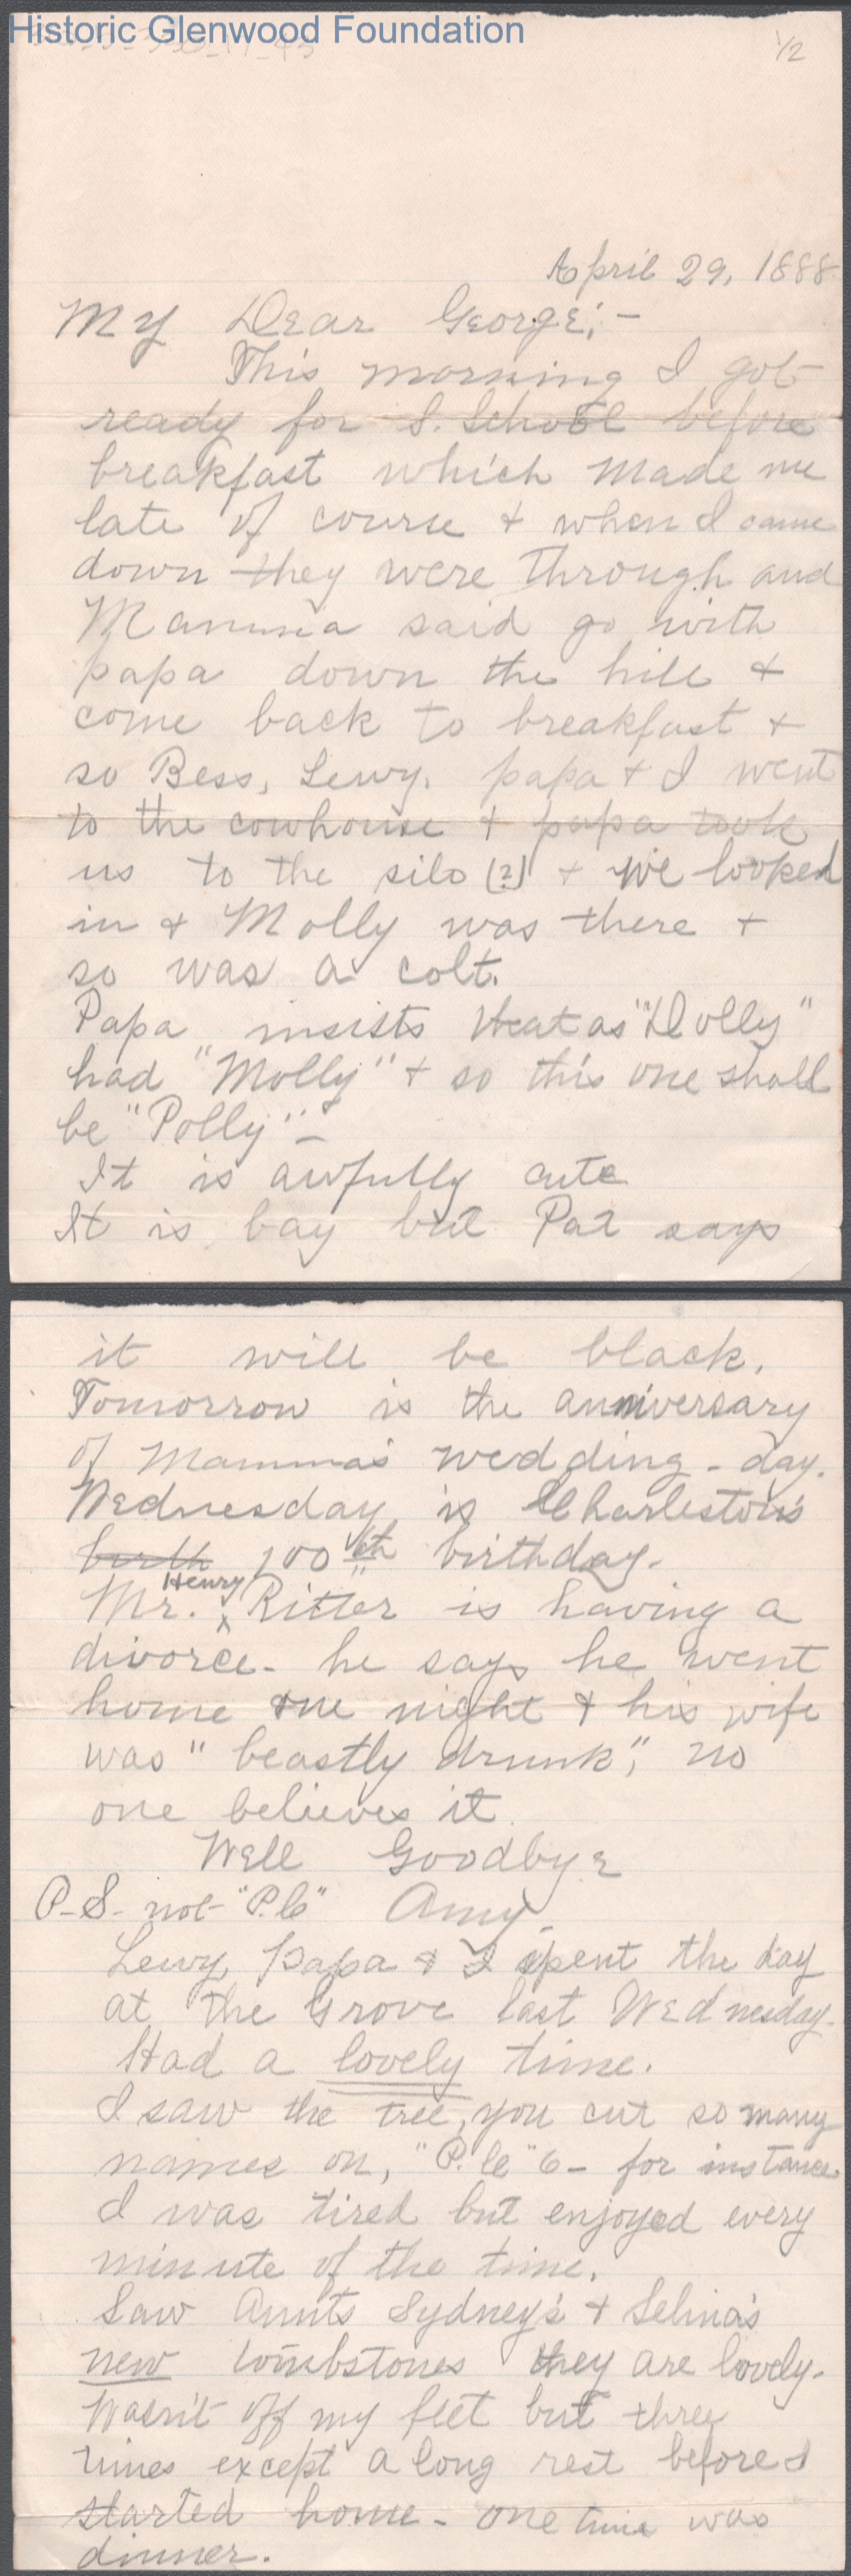 Historic Glenwood Foundation
1/2
April 29, 1888.
My Dear George; -
This morning I got
ready for S. School before
breakfast which made me
late of course + when I came
down they were through and
Mamma said go with
papa down the hill +
come back to breakfast +
so Bess, Lewy, papa + I went
to the cowhouse + papa took
us to the silo (?) + we looked
in + Molly was there +
so was a colt.
Papa insists that as "Dolly"
had "Molly" + so this one shall
be "Polly" -
It is awfully cute
It is bay but Pat says
it will be black.
Tomorrow is the anniversary
of Mamma's wedding-day.
Wednesday is Charleston's
birth 100th birthday.
Henry
Mr. ^ Ritter is having a
divorce - he says he went
home one night + his wife
was "beastly drunk", no
one believes it.
Well Goodbye
P-S- not "P.C" Amy.
Lewy, Papa + I spent the day
at the Grove last Wednesday.
Had a lovely time.
I saw the tree, you cut so many
names on, "P. C" 6 - for instance
I was tired but enjoyed every
minute of the time.
Saw Aunts Sydney's + Selina's
new tombstones they are lovely.
Wasn't off my feet but three
times except a long rest before I
started home - one time was
dinner.